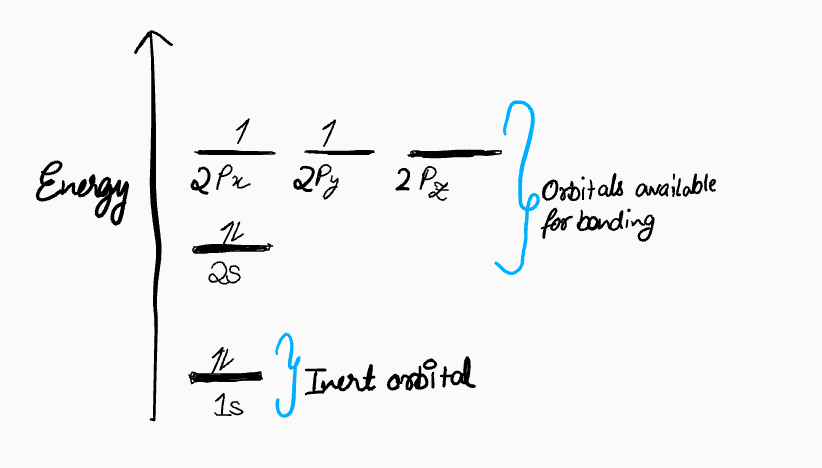 1 1
Energy
2Px 2Py 2Pz
Orbitals available
for bonding
1L
2s
1L
Inert orbital
1s